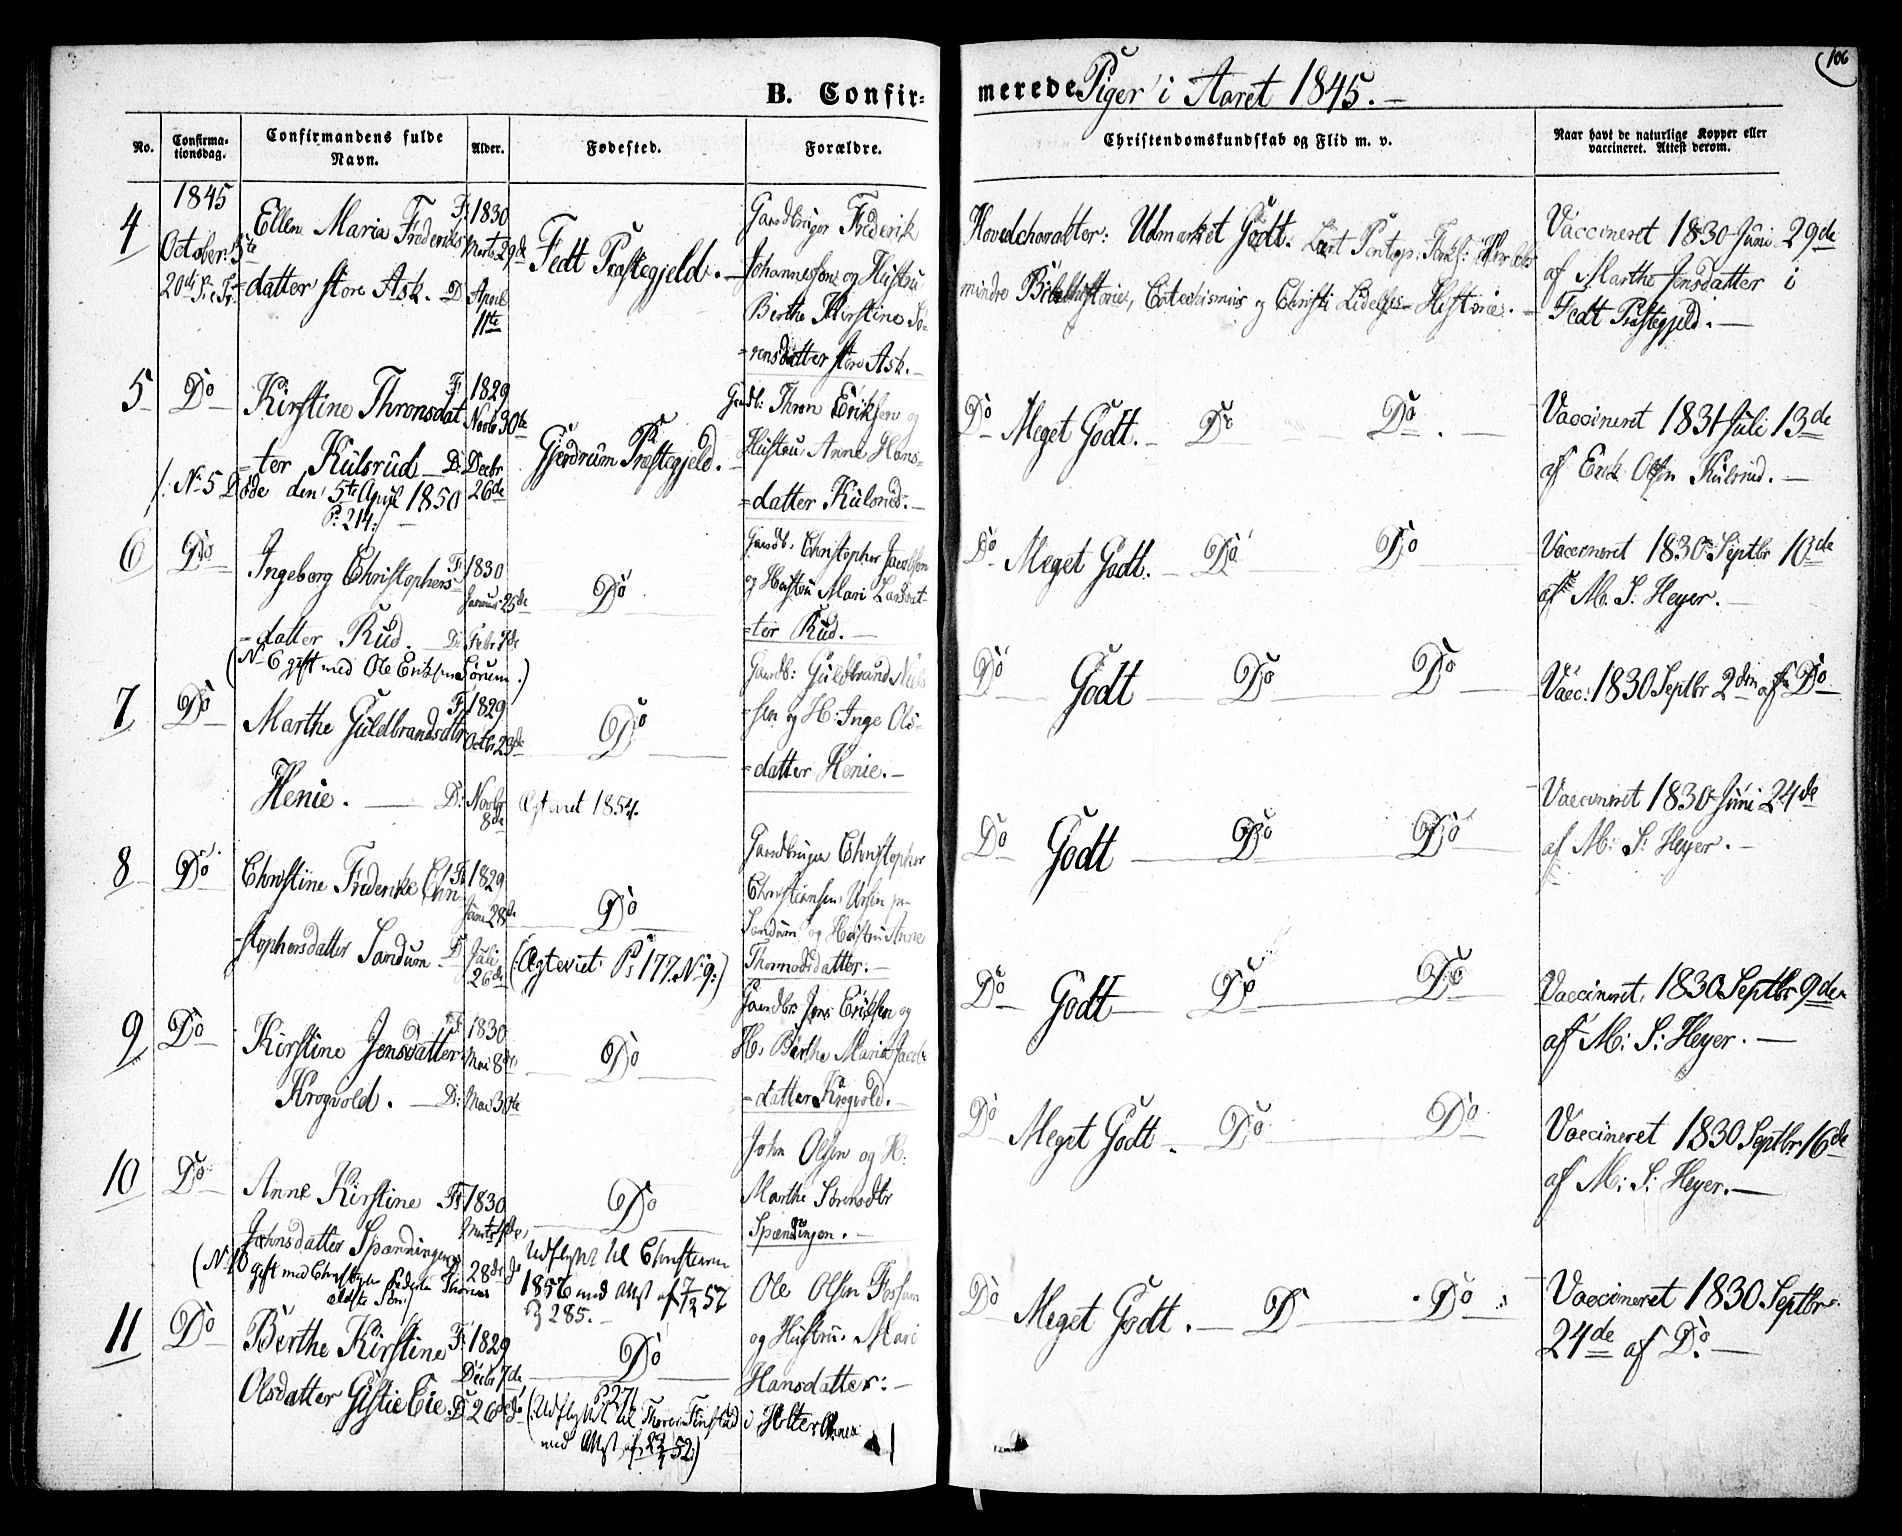 106
B. Confir-
merede Piger i Aaret 1845.
No.
Confirma-
tionsdag.
Confirmandens fulde
Navn.
Alder.
Fødested.
Forældre.
Christendomskundskab og Flid m. v.
Naar havt de naturlige Kopper eller
vaccineret. Attest derom.
4
1845
October 5te
20de S. e. Tr.
Ellen Maria Frederiks
=datter store Ask.
F. 1830
Marts 29de
D April
11te
Fedt Præstegjeld.
Gaardbruger Frederik
Johannesen og Hustru
Berthe Kirstine Sö-
=rensdatter store Ask.
Hovedcharakter: Udmærket Godt. Lært Pontop. Forkl:
mindre Bibelhistorie, Catechismus og Christi Lidelses-Historie.
Vaccineret 1830 Juni 29de
af Marthe Jensdatter i
Fedt Præstegjeld.
5
Do
Kirstine Thronsdat
=ter Kulsrud
/: No 5 Døde den 5te April 1850
P. 214:/
F. 1829
Novbr 30te
D: Decbr
26de
Gjerdrum Præstegjeld.
Gaardb: Thron Eriksen og
Hustru Anne Hans-
=datter Kulsrud.
Do Meget Godt. Do Do
Vaccineret 1831 Juli 13de
af Erik Olsen Kulsrud.
6
Do
Ingeborg Christophers
=datter Rud.
(No 6 gift med Ole Eriksen Sörum.)
F. 1830
Januar 25de
D: Febr 7de
Do
Gaardb: Christopher Jacobsen
og Hustru Mari Larsdat-
=ter Rud.
Do Meget Godt. Do Do
Vaccineret 1830 Septbr 10de
af M. S. Heyer.
7
Do
Marthe Guldbrandsdtr
Henie.
F. 1829
Octbr 23de
D: Novbr
8de
Do
Ægteviet 1854.
Gaardb: Guldbrand Niels
=sen og H: Inge Ols-
=datter Henie.
Do Godt Do Do
Vacc: 1830 Septbr 2den af Do
8
Do
Christine Frederike Chri
=stophersdatter Sandum
F. 1829
Juni 28de
D Juli
26de
Do
(:Ægteviet P: 177. No 9:)
Gaardbruger Christopher
Christiansen Ursin
Sandum og Hustru Anne
Thomasdatter.
Do Godt Do Do
Vaccineret 1830 Juni 24de
af M: S: Heyer.
9
Do
Kirstine Jensdatter
Krogvold.
F. 1830
Mai 8de
D: Mai 30te
Do
Gaardbr: Jens Eriksen og
H: Berthe Maria Jacobs
=datter Krogvold.
Do Godt Do Do
Vaccineret 1830 Septbr 9de
af M: S: Heyer.
10
Do
Anne Kirstine
Johnsdatter Spænningen
(No 10
gift med
ældste Sön)
F. 1830
Marts
D 28de do
Do
Udflyttet til Christiania
1856 med Attest af 7/2 57
P 285.
John Olsen og H:
Marthe Sörensdtr
Spænningen.
Do Meget Godt. Do Do
Vaccineret 1830 Septbr 16de
af M: S: Heyer.
11
Do
Berthe Kirstine
Olsdatter Gistie Eie.
F. 1829
Decbr 7de
D 26de do
Do
P 271
(:Udflyttet til Thorer Finstad i Holter Annex
med Attest af 52:)
Ole Olsen Fossum
og Hustru Mari
Hansdatter:
Do Meget Godt. D Do
Vaccineret 1830 Septbr
24de af Do.